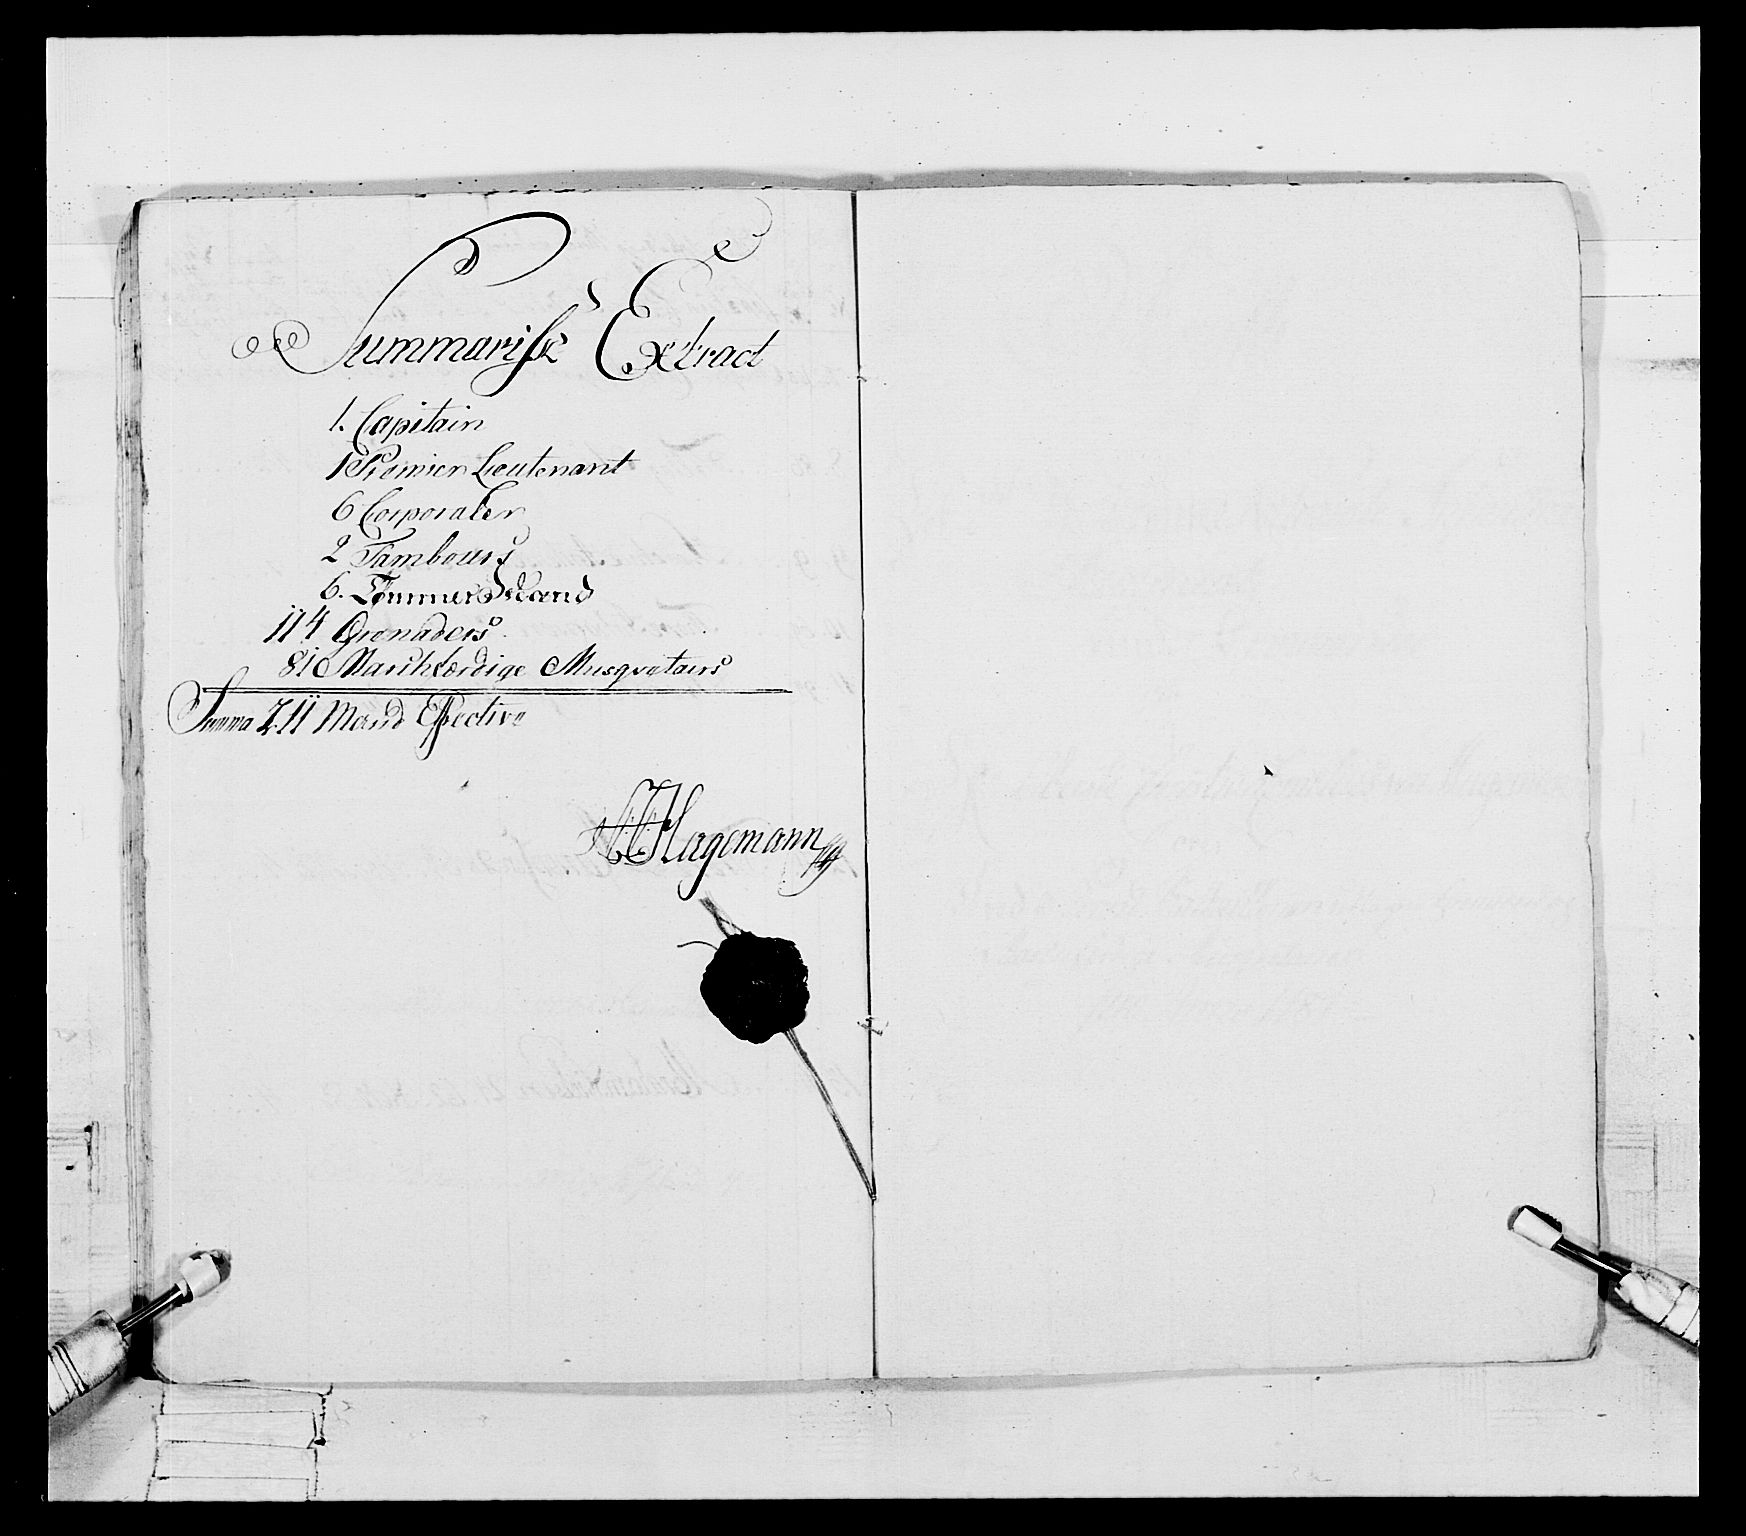 Summarisk Extract
1. Capitain
1 Premier Lieutenant
6 Corporaler
2 Tambours
6. Tömmermænd
114 Grenaders
81 Marschfærdige Musqvetairs
Summa 211 Mand Effective
Hagemann